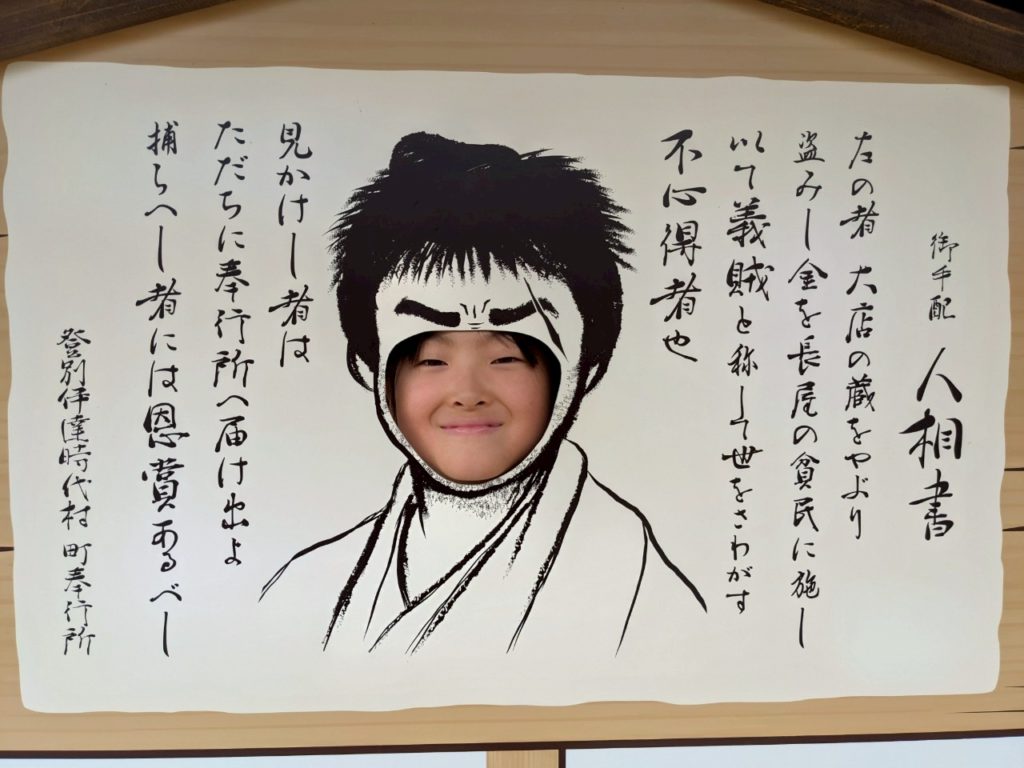 御手配 人相書
左の者 大店の蔵をやぶり
盗みし金を長屋の貧民に施し
以て義賊と称して世をさわがす
不心得者也
見かけし者は
ただちに奉行所へ届け出よ
捕らへし者には恩賞あるべし
登別伊達時代村 町奉行所